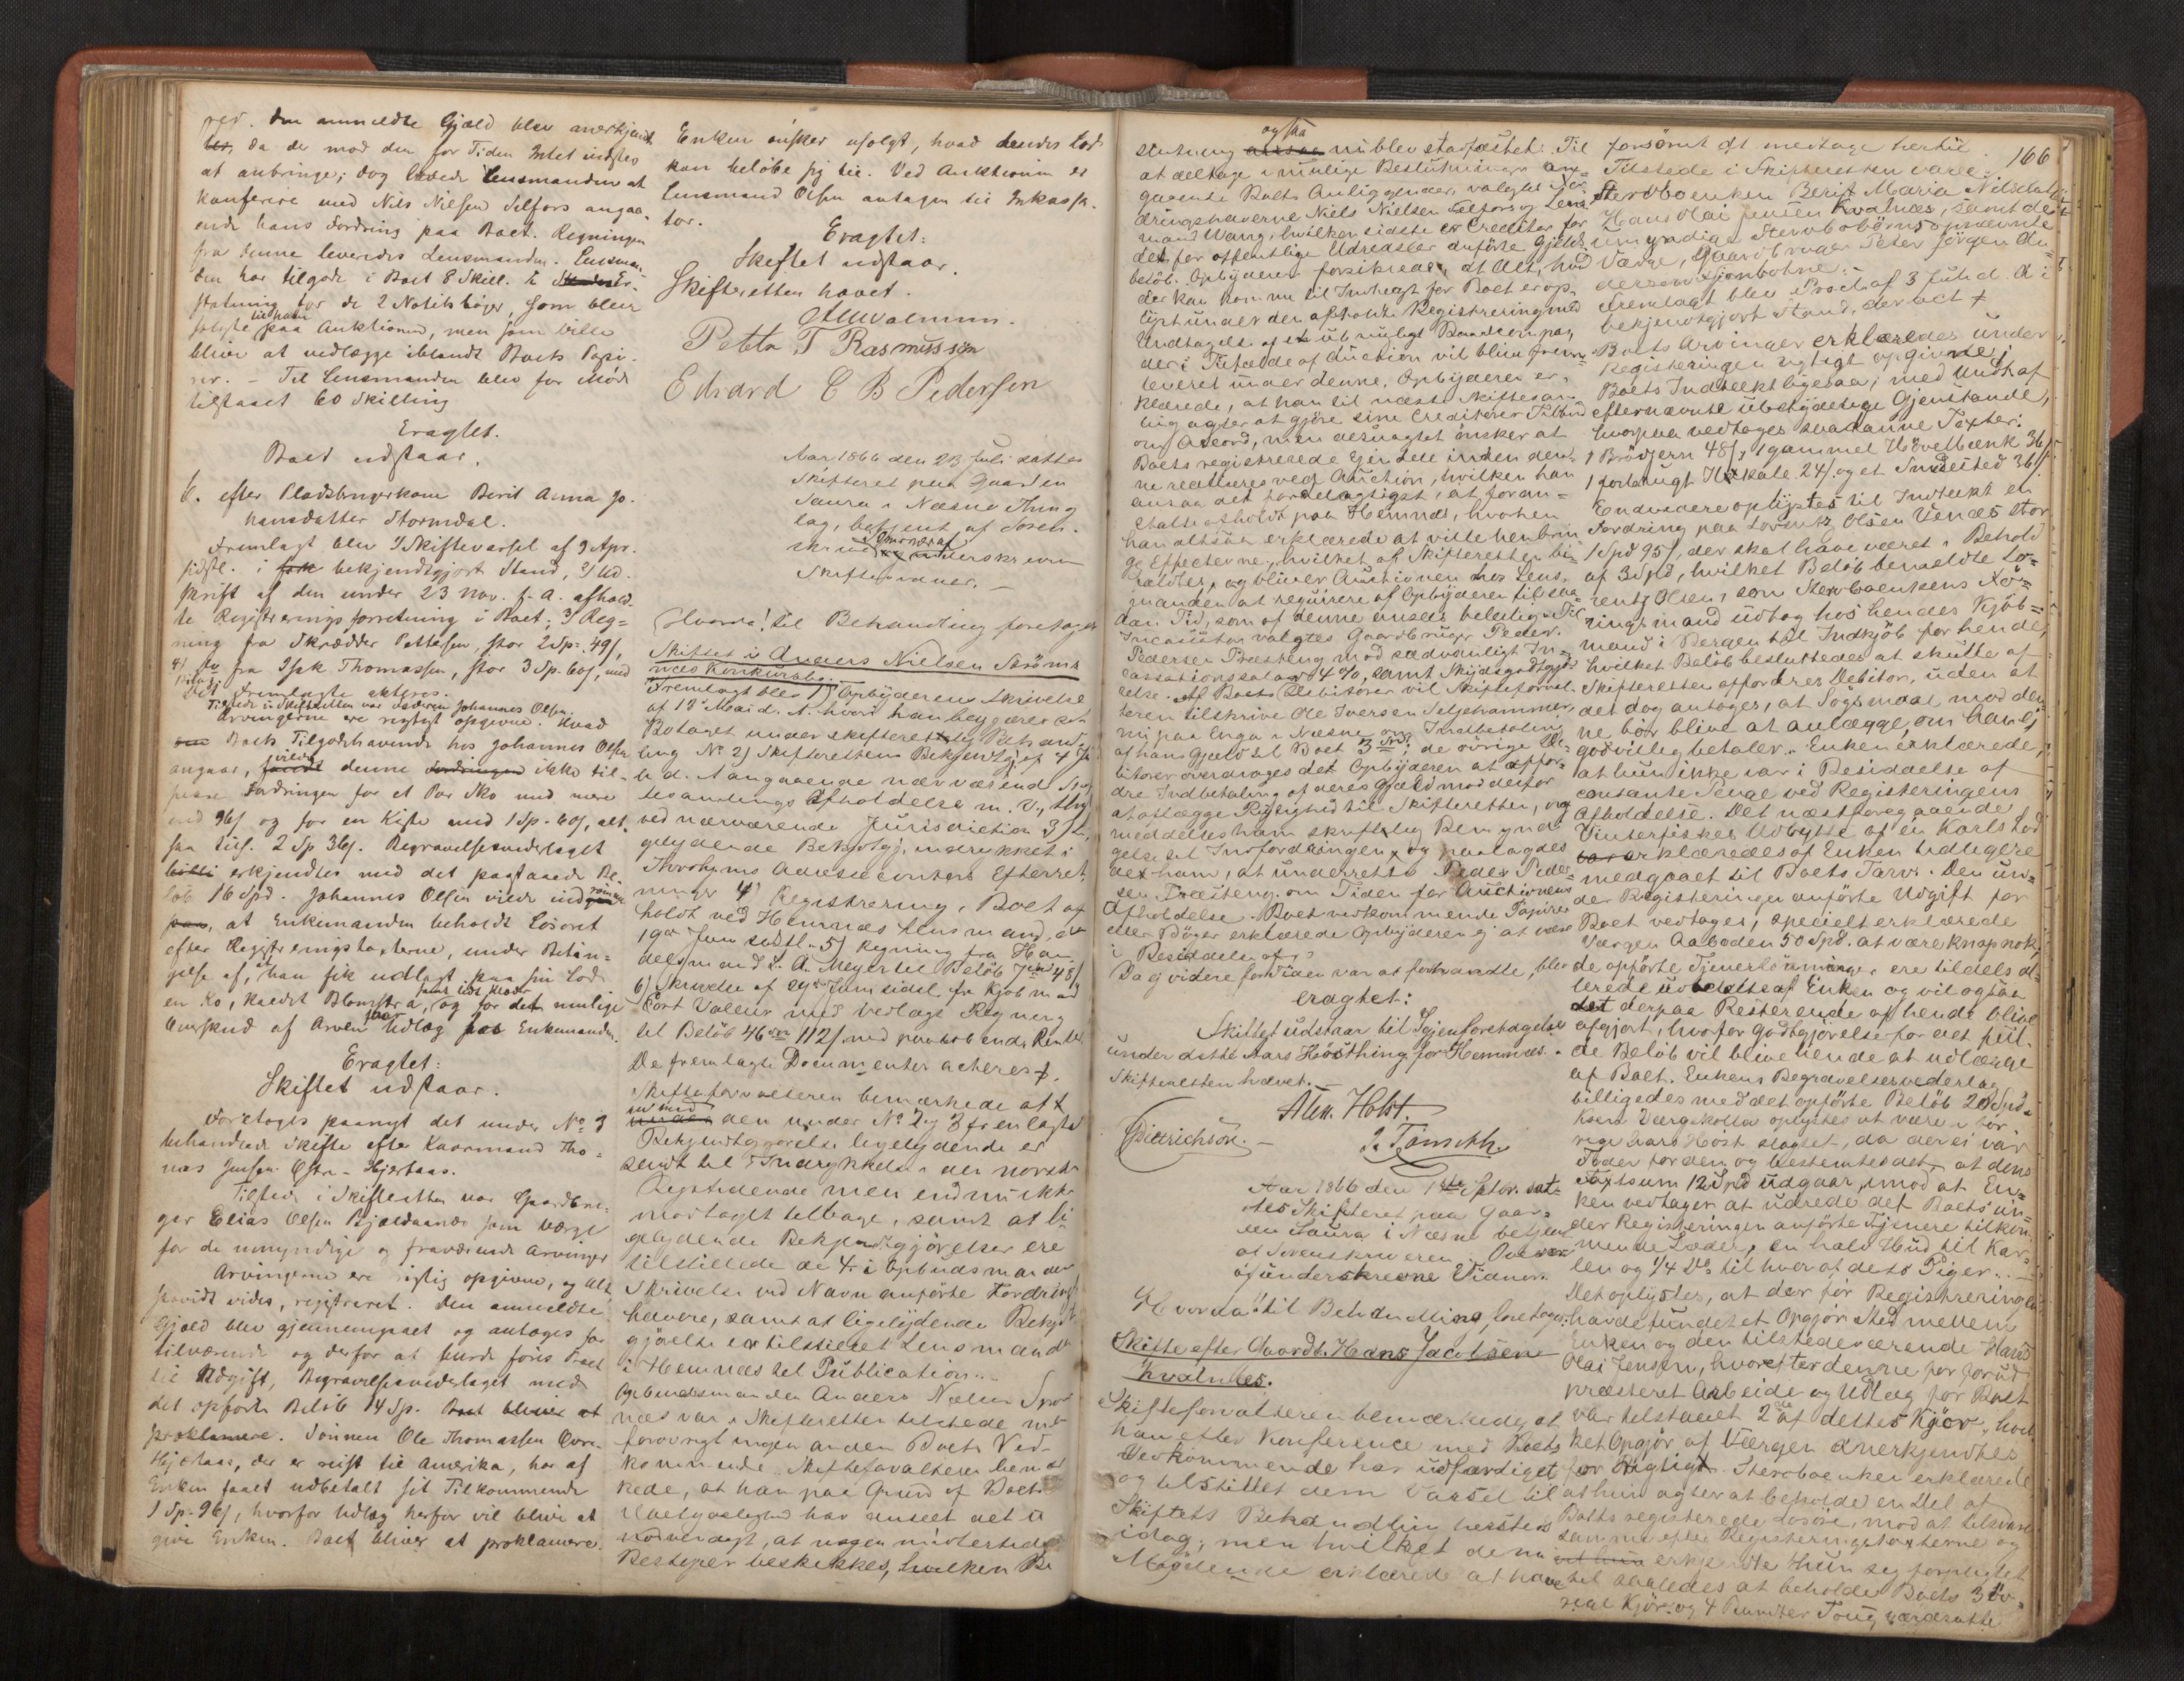 ved. Den anmeldte Gjæld blev anerkjendt
tes, da der mod den for Tiden Intet vidstes
at anbringe; dog lovede Lensmanden at
konferere med Nils Nielsen Selfors angaa-
ende hans Fordring paa Boet. Regningen
fra denne leveredes Lensmanden. Lensman-
den har tilgode i Boet 8 Skill. i Er-
statning for de 2 Notitsbøger, som blev
solgte til ham paa Auktionen, men som ville
blive at vedlægge iblandt Boets Papi-
rer. – Til Lensmanden blev for Møde
tilstaaet 60 Skilling
Eragtet.
Boet udstaar.
6. efter Pladsbrugerkone Berit Anna Jo-
hansdatter Stormdal.
Fremlagt blev 1) Skiftevarsel af 9 Apr.
sidstl. i bekjendtgjort Stand, 2) Ud-
skrift af den under 23 Nov. f. A. afhold-
te Registreringsforretning i Boet; 3) Reg-
ning fra Skrædder Pettersen, stor 2 Sp. 49ß,
4) do fra Isak Thomassen, stor 3 Sp. 60ß, med
Bilag.
Det Fremlagte akteres.
Tilstede i Skifteretten var Fæderen Johannes Olsen.
Arvingerne ere rigtigt opgivne. Hvad
Boets Tilgodehavende hos Johannes Olsen
angaar, vilde denne ikke til-
fordringen for et Par Sko med mere
end 96ß og for en Kiste med 1 Sp. 60ß, alt-
saa tils. 2 Sp 36ß. Begravelsesvederlaget
erkjendtes med det paastaaede Be-
løb 16 Spd. Johannes Olsen vilde indrømme
at Enkemanden beholdt Løsøret
efter Registreringstaxterne, under Betin-
gelse af, at han fik udlagt paa sin Lod
en Ko, kaldet Blomstra, samt lidt Klæder, og for det mulige
Overskud af Arven faar Udlæg hos Enkemanden.
Eragtet:
Skiftet udstaar.
Foretoges paanyt det under No 3
behandlede Skifte efter Kaarmand Tho-
mas Jensen Østre-Hjertaas.
Tilstede i Skifteretten var Gaardbru-
ger Elias Olsen Bjældaanæs som Værge
for de umyndige og fraværende Arvinger
Arvingerne ere rigtig opgivne, og alt,
saavidt vides, registreret. Den anmeldte
Gjæld blev gjennemgaaet og antoges for
tilværende og derfor at burde føres Boet
til Udgift, Begravelsesvederlaget med
det opførte Beløb 14 Sp. Boet bliver at
proklamere. Sønnen Ole Thomassen Øvre-
Hjertaas, der er reist til Amerika, har af
Enken faaet udbetalt sit Tilkommende
1 Sp. 96ß, hvorfor Udlæg herfor vil blive at
give Enken. Boet bliver at proklamere.
Enken ønsker usolgt, hvad hendes Lod
kan beløbe sig til. Ved Auktionen er
Lensmand Olsen antagen til Inkassa-
tor.
Eragtet:
Skiftet udstaar.
Skifteretten hævet.
Petter T Rasmussen
Edvard C B Pedersen
Aar 1866 den 23 Juli sattes
Skifteret paa Gaarden
Saura i Næsne Thing
lag, betjent af Soren-
skriveren i Overvær af underskrevne
Skiftevidner. –
Hvorda! til Behandling foretoges
Skiftet i Anders Nielsen Sørøms
næs Konkursbo.
Fremlagt blev 1) Opbyderens Skrivelse
af 18de Mai d. A. hvori han begjærer sit
Bo taget under skifteretslig Behand
ling No 2) Skifterettens Bekjendtgj. af 4 Juni
d. A angaaende nærværende Skif-
tesamlings Afholdelse m. v., thgl.
ved nærværende Jurisdiction 3) Li-
gelydende Bekjdtgj. indrykket i
Throndhjems Adressecontoirs Efterret-
ninger 4) Registrering i Boet af-
holdt ved Hemnæs Lensmand, d.
19de Juni sidstl. 5) Regning fra Han-
delsmand L. A. Meyer til Beløb 7 Spd 48ß
6) Skrivelse af 29de Juni sidstl. fra Kjøbmand
Cort Valeur med vedlagt Regning
til Beløb 46 Spd 112ß med paaløbende Renter.
De fremlagte Documenter acteres.
Skifteforvalteren bemærkede at
en med den under No 2 og 3 fremlagte
Bekjendtgjørelse ligelydende er
sendt til Indrykkelse i den norske
Rigstidende men endnu ikke
modtaget tilbage, samt at li-
gelydende Bekjendtgjørelser ere
tilstillede de 4 i Opbudsmandens
Skrivelse ved Navn anførte Fordrings-
havere, samt at ligelydende Bekjdt-
gjørelse er tilstillet Lensmanden
i Hemnæs til Publication. –
Opbudsmanden Anders Nielsen Sørøm-
næs var i Skifteretten tilstede men
forøvrigt ingen anden Boets Ved-
kommende. Skifteforvalteren bemær-
kede, at han paa Grund af Boets
Ubetydelighed har anseet det u-
nødvendigt, at nogen midlertidig
Bestyrer beskikkes, hvilken Be
slutning ogsaa nu blev stadfæstet. Til
at deltage i mulige Beslutninger an-
gaaende Boets Anliggender, valgtes For-
dringshaverne Niels Nielsen Selfors og Lens-
mand Wang, hvilken sidste er Creditor for
det for offentlige Udredsler anførte Gjelds-
beløb. Opbyderen forsikrede, at Alt, hvad
der kan komme til Indtægt for Boet er op-
lyst under den afholdte Registrering med
Undtagelse af et ubrugt Baadtømpar,
der i Tilfælde af Auction vil blive frem-
leveret under denne. Opbyderen er-
klærede, at han til næste Skiftesam-
ling agter at gjøre sine Creditorer Tilbud
om Accord, men desuagtet ønsker at
Boets registrerede Eiendele inden den-
ne realiseres ved Auction, hvilken han
ansaa det fordelagtigst, at foran-
staltes afholdt paa Hemnæs, hvorhen
han altsaa erklærede at ville henbrin-
ge Effecterne, hvilket af Skifteretten bi-
faldtes, og bliver Auctionen hos Lens-
manden at requirere af Opbyderen til saa-
dan Tid, som af denne ansees beleilig. Til
Incassator valgtes Gaardbruger Peder
Pedersen Præsteng mod sædvanligt In-
cassationssalær 4 %, samt Skydsgodtgjø-
relse. Af Boets Debitorer vil Skifteforval-
teren tilskrive Ole Iversen Seljehammer,
nu paa Enga i Næsne om Indbetaling
af hans Gjeld til Boet 3 Spd; de øvrige De-
bitorer overdrages det Opbyderen at affor-
dre Indbetaling af deres Gjæld mod derfor
at aflægge Rigtighed til Skifteretten, og
meddeles ham skriftlig Bemyndi-
gelse til Indfordringen, og paalagdes
det ham, at underrette Peder Peder-
sen Præsteng om Tiden for Auctionens
Afholdelse. Boet vedkommende Papirer
eller Bøger erklærede Opbyderen ej at være
i Besiddelse af.
Da ej videre for Tiden var at forhandle, blev
eragtet:
Skiftet udstaar til Igjenforetagelse
under dette Aars Høstthing for Hemnæs. –
Skifteretten hævet. –
Alex. Holst.
Didrichsen. –
Aar 1866 den 1ste Septbr. sat-
tes Skifteret paa Gaar-
den Saura i Næsne betjent
af Sorenskriveren i Overvær
af underskrevne Vidner.
Hvorda! til Behandling foretoges:
Skifte efter Gaardb. Hans Jacobsen
Kvalnes.
Skifteforvalteren bemærkede, at
han efter Konference med Boets
Vedkommende har udfærdiget
og tilstillet dem Varsel til
Skiftets Behandling hersteds
idag, men hvilket de nu
Mødende erklærede at have
forsømt at medtage hertil. 166
Tilstede i Skifteretten vare:
Stervboenken Berit Maria Nilsdatter
Hans Olai Jensen Kvalnæs, samt de
umyndige Stervbobørns opnævnte
Værge, Gaardbruger Peter Jørgen An-
dersen Sjonbotne. –
Fremlagt blev Procl. af 3 Juli d. A i
bekjendtgjort Stand, der act
Boets Arvinger erklæredes under
Registeringen rigtigt opgivne;
Boets Indtækt ligesaa; med Undt. af
efternævnte ubetydelige Gjenstande,
hvorpaa vedtages saadanne Taxter:
1 Brødjern 48ß, 1 gammel Høvelbænk 36ß
1 forbrugt Hxkale 24ß og et Smidested 36ß.
Endvidere oplystes til Indtækt en
Fordring paa Lorentz Olsen Venæs stor
1 Spd 95ß, der skal have været i Behold
af 3 Spd, hvilket Beløb bemeldte Lo-
rentz Olsen, som Stervboenkens Næ-
ringsmand udtog hos hendes Kjøb-
mand i Bergen til Indkjøb for hende,
hvilket Beløb besluttedes at skulle af
Skifteretten affordres Debitor, uden at
det dog antages, at Søgsmaal mod den-
ne bør blive at anlægge, om han ej
godvillig betaler. Enken erklærede,
at hun ikke var i Besiddelse af
contante Penge ved Registeringens
Afholdelse. Det næstforegaaende
Vinterfiskes Udbytte af en Karlslod
erklæredes af Enken tidligere
medgaaet til Boets Tarv. Den un-
der Registeringen anførte Udgift for
Boet vedtages, specielt erklærede
Værgen Aaboden 50 Spd. at være knap nok,
de opførte Tjenerlønninger, ere tildels al-
lerede udbetalte af Enken og vil ogsaa
det derpaa Resterende af hende blive
afgjort, hvorfor Godtgjørelse for det ful-
de Beløb vil blive hende at udlægge
af Boet. Enkens Begravelsesvederlag
billigedes med det opførte Beløb 20 Spd.
Koen Værgekolla oplystes at være i for-
rige Aars Høst slagtet, da der ei var
Foder for den og bestemtes det, at dens
Taxtsum 12 Spd udgaar, imod at En-
ken vedtager at udrede det Boets un-
der Registeringen anførte Tjenere tilkom-
mende Læder, en halv Hud til Kar-
len og 1/4 Do. til hver af dets Piger. –
Det oplystes, at der før Registreringen
havde fundet et Opgjør Sted mellem
Enken og den tilstedeværende Hans
Olai Jensen, hvorefter denne for forud
præsteret Arbeide og Udlæg for Boet
var tilstaaet 2de af dettes Kjør, hvil-
ket Opgjør af Værgen anerkjendtes
for Rigtigt. Stervboenken erklærede
at hun agter at beholde en Del af
Boets registerede Løsøre, mod at tilsvare
samme efter Registeringstaxterne og
erkjendte Hun sig forpligtet
til saaledes at beholde Boets 3 øv-
rige Kjør og 4 Bundter Toug værdsatte